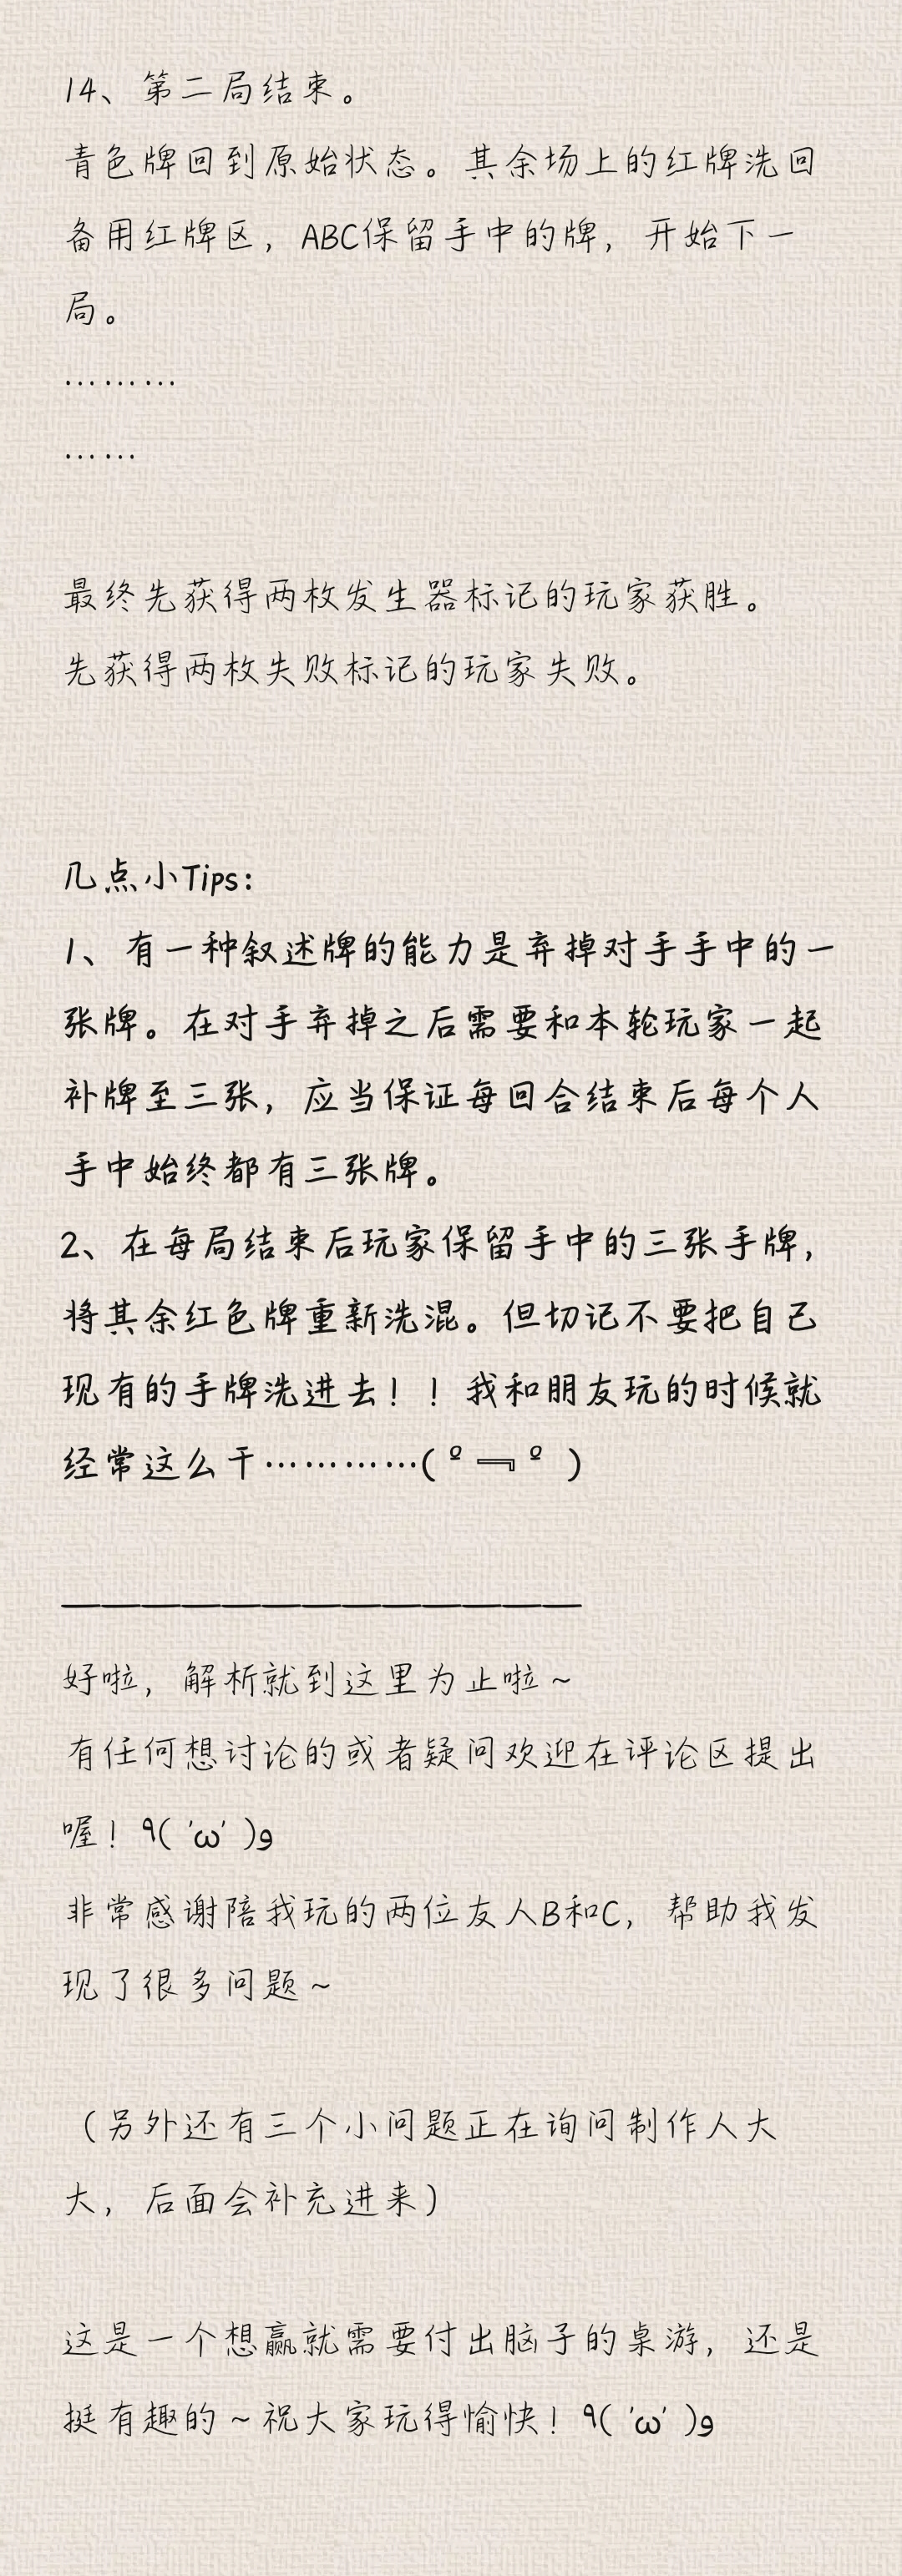 14、第二局结束。
青色牌回到原始状态。其余场上的红牌洗回
备用红牌区，ABC保留手中的牌，开始下一
局。
………
……
最终先获得两枚发生器标记的玩家获胜。
先获得两枚失败标记的玩家失败。
几点小Tips：
1、有一种叙述牌的能力是弃掉对手手中的一
张牌。在对手弃掉之后需要和本轮玩家一起
补牌至三张，应当保证每回合结束后每个人
手中始终都有三张牌。
2、在每局结束后玩家保留手中的三张手牌，
将其余红色牌重新洗混。但切记不要把自己
现有的手牌洗进去！！我和朋友玩的时候就
经常这么干…………(º﹃º )
—————————————
好啦，解析就到这里为止啦～
有任何想讨论的或者疑问欢迎在评论区提出
喔！٩( 'ω' )و
非常感谢陪我玩的两位友人B和C，帮助我发
现了很多问题～
（另外还有三个小问题正在询问制作人大
大，后面会补充进来）
这是一个想赢就需要付出脑子的桌游，还是
挺有趣的～祝大家玩得愉快！٩( 'ω' )و